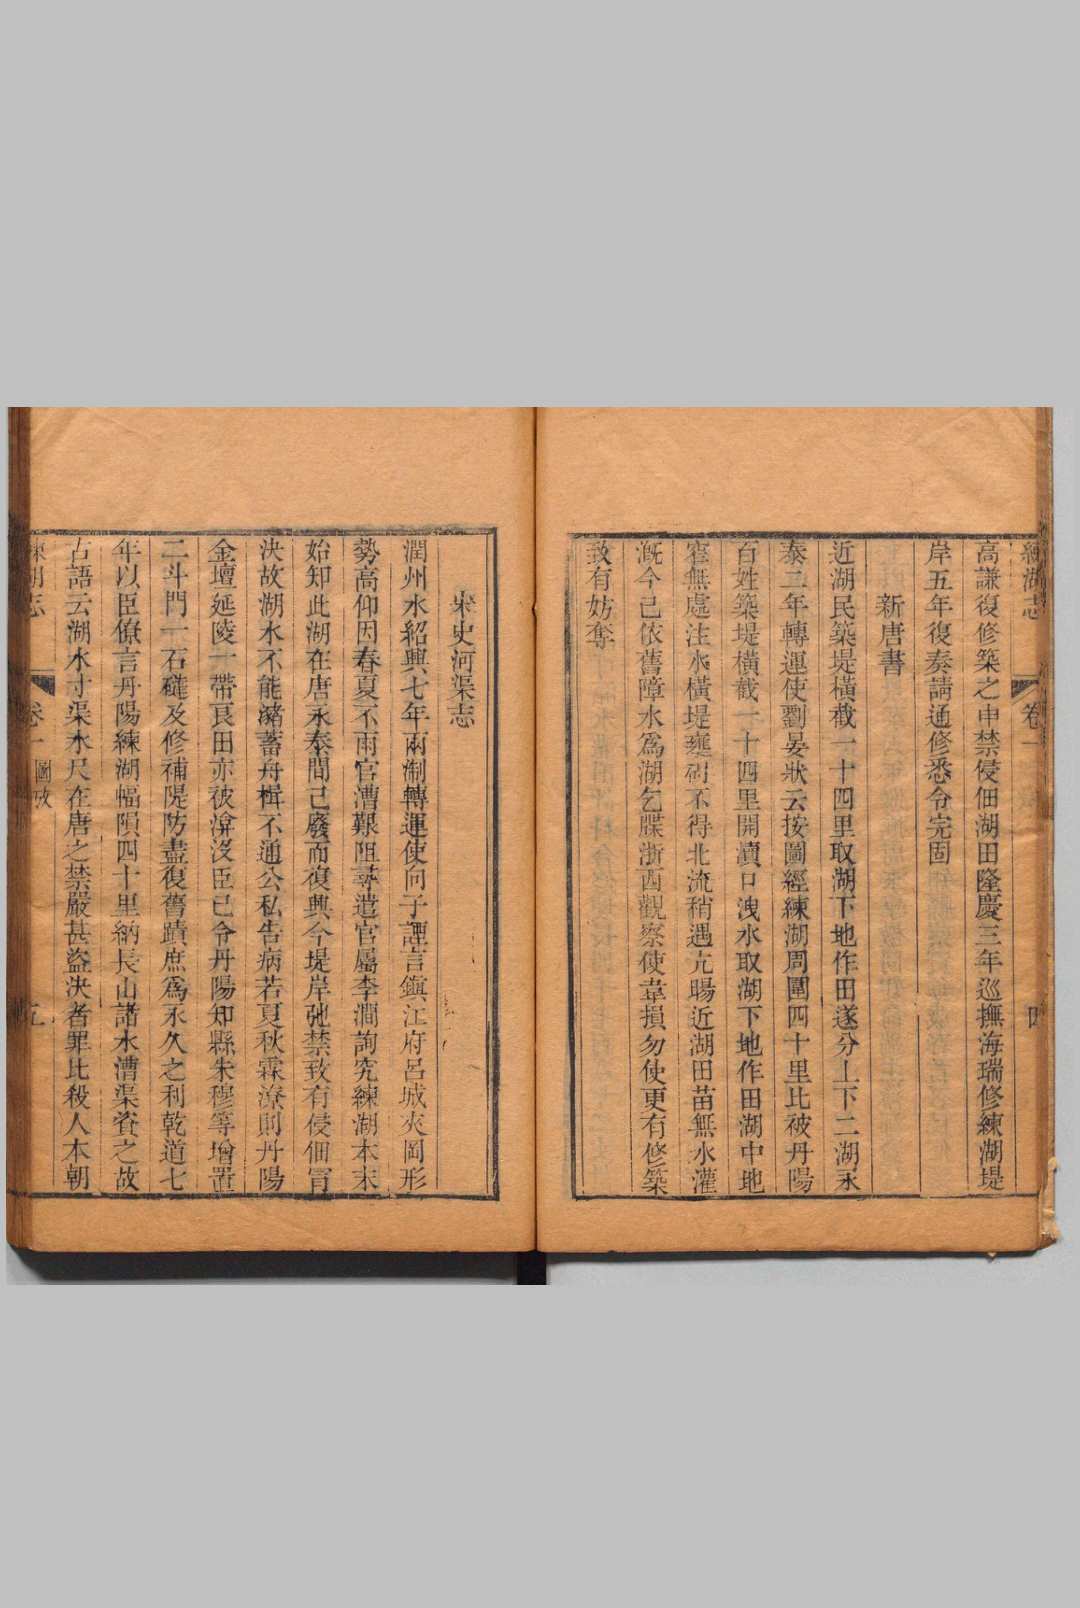 練湖志 卷一 四
高謙復修築之申禁侵佃湖田隆慶三年巡撫海瑞修練湖堤
岸五年復奏請通修悉令完固
新唐書
近湖民築堤橫截一十四里取湖下地作田遂分上下二湖永
泰二年轉運使劉晏狀云按圖經練湖周圍四十里比被丹陽
百姓築堤橫截一十四里開瀆口洩水取湖下地作田湖中地
窄無處注水橫堤壅礙不得北流稍遇亢暘近湖田苗無水灌
溉今已依舊障水爲湖乞牒浙西觀察使韋損勿使更有修築
致有妨奪
宋史河渠志
潤州水紹興七年兩淛轉運使向子諲言鎭江府呂城夾岡形
勢高仰因春夏不雨官漕艱阻尋遣官屬李澗詢究練湖本末
始知此湖在唐永泰間已廢而復興今堤岸弛禁致有侵佃冐
決故湖水不能瀦蓄舟楫不通公私告病若夏秋霖潦則丹陽
金壇延陵一帶良田亦被渰沒臣已令丹陽知縣朱穆等增置
二斗門一石䃮及修補隄防盡復舊蹟庶爲永久之利乾道七
年以臣僚言丹陽練湖幅隕四十里納長山諸水漕渠資之故
古語云湖水寸渠水尺在唐之禁嚴甚盜決者罪比殺人本朝
練湖志 卷一 圖攷 五